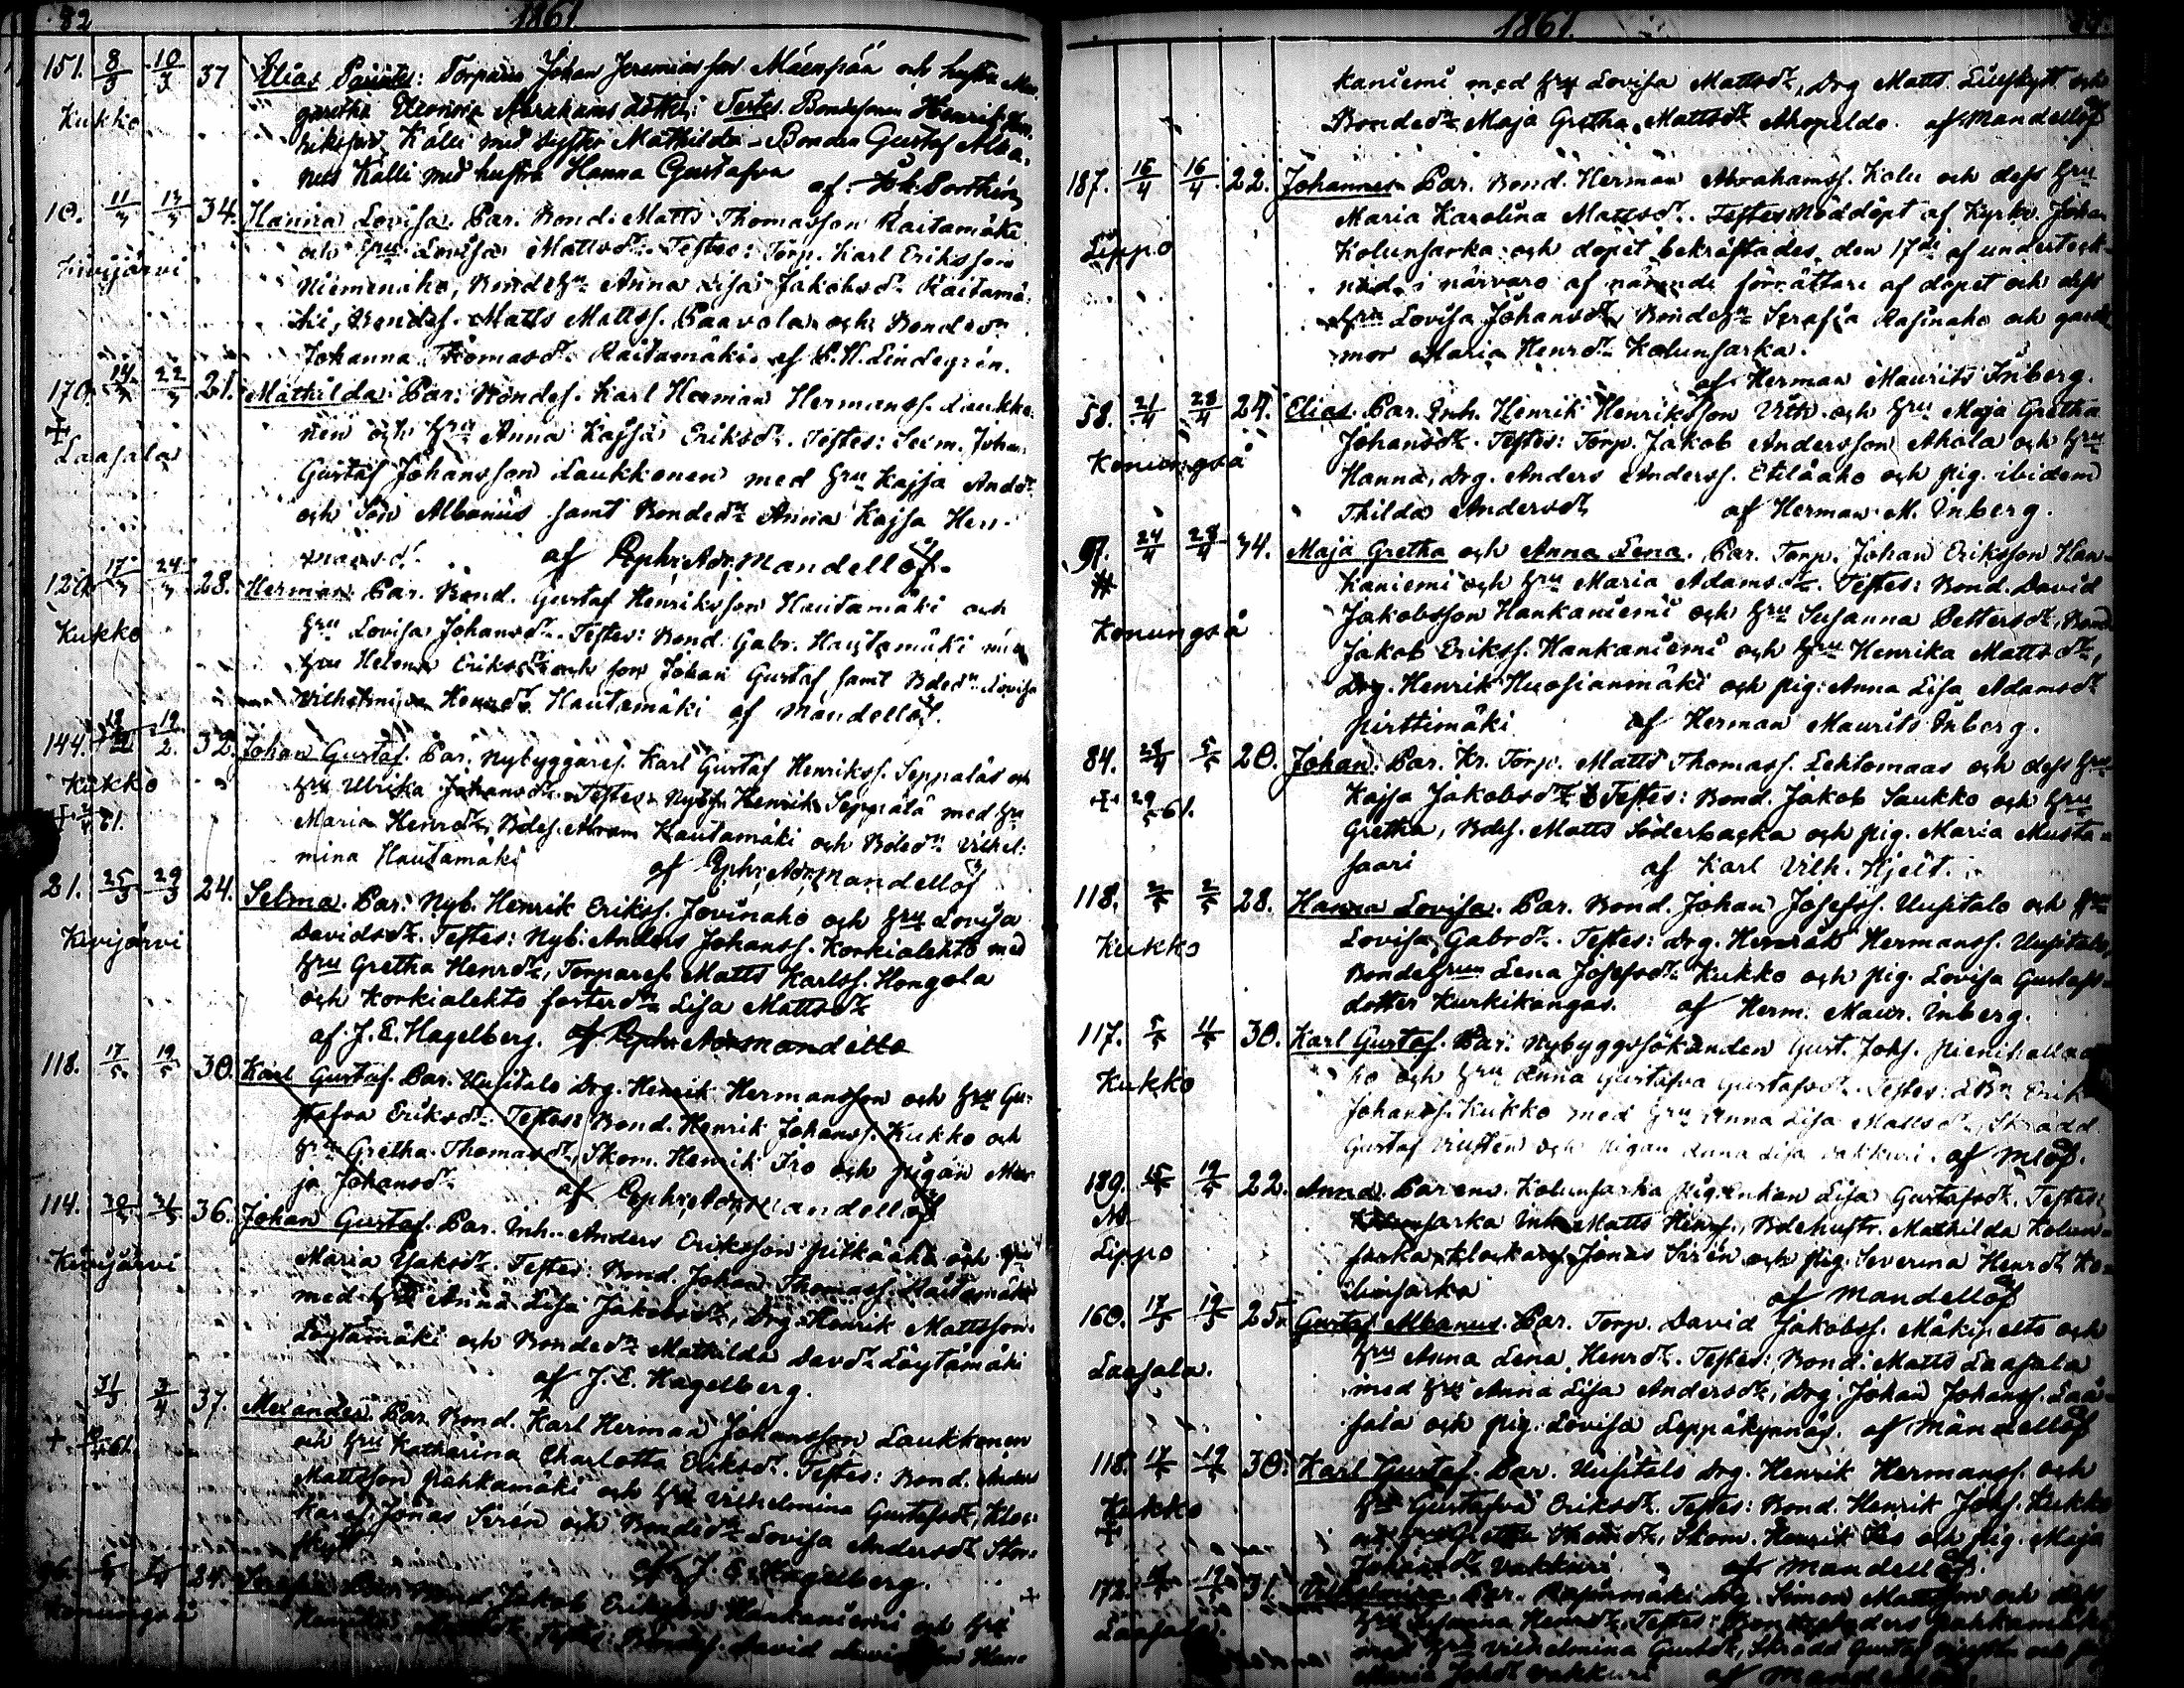 82 1861.
151. 8/3 10/3 37 Elias Parentes: Torparen Johan Jeremiasson Mäenpää och hustru Mar-
garetha Eleonora Abrahamsdotter; Testes. Bondesonen Henrik Hen-
Kukko
riksson Källi med syster Mathilda - Bonden Gustaf Alba-
nus Källi med hustru Hanna Gustafva af
10. 34. Hanna Lovisa. Par. Bond. Matts Thomasson Raitamäki
och hru Lovisa Mattsdr. Testes: Torp. Karl Eriksson
Kivijärvi
Niemenaho, Bondehn Anna Lisa Jakobsdr Raitamä-
ki, Bondes. Matts Mattss. Paavola och Bondedn
Johanna Thomasdr Raitamäki. af Lindegrén.
170. 22/3 21. Mathilda. Par: Bondes. Karl Herman Hermanss. Laukko-
nen och hru Anna Kajsa Eriksdr. Testes: Johan
Laasala
Gustaf Johansson Laukkonen med hru Kajsa Andd.
och Son Albanus samt Bondedn Anna Kajsa Her-
mansd. af Ephr. Adr. Mandellöf.
120. 17/3 24/3 28. Herman. Par. Bond. Gustaf Henriksson Hautamäki och
Kukko
hru Lovisa Johansdr. Testes: Bond. Gabr. Hautamäki med
hru Helena Eriksdr och son Johan Gustaf samt Bdedn Lovisa
Vilhelmina Henrdr Hautamäki af Mandellöf.
144. 19/2 32. Johan Gustaf. Par. Nybyggares. Karl Gustaf Henrikss. Seppälä och
Kukko
hru Ulrika Johansdr. Testes: Henrik Seppälä med hru
Maria Henrdr, Bdes. Abram Hautamäki och Bdedn Vilhel-
mina Hautamäki af Ephr. Adr. Mandellöf
21. 25/3 29/3 24. Selma. Par. Nyb. Henrik Erikss. Jovinaho och hru Lovisa
Kivijärvi
Davidsdr. Testes: Nyb. Anders Johanss. Korkialehto med
hru Gretha Henrdr, Torpares. Matts Karlss. Hongola
och Korkialehto fosterdn Lisa Mattsdr
af J. E. Hagelberg.
118. 17/5 19/5 30. Karl Gustaf. Par. Uusitalo Drg. Henrik Hermansson och hru Gu-
stafva Eriksdr. Testes: Bond. Henrik Johanss. Kukko och
hru Gretha Thomasdr, Skom. Henrik Iro och pigan Ma-
ja Johansd. af Ephr. Adr. Mandellöf
114. 36. Johan Gustaf. Par. Inh. Anders Eriksson Pitkäaho och hru
Kivijärvi
Maria Isaksdr. Testes: Bond. Johan Thomass. Raitamäki
med hru Anna Lisa Jakobsdr, Drg. Henrik Mattsson
Löytämäki och Bondedn Mathilda Davdr Löytämäki
af J. E. Hagelberg.
31/3 37. Alexander. Par. Bond. Karl Herman Johansson Laukkonen
och hru Katharina Charlotta Eriksdr. Testes: Bond. Anders
Mattsson Pahkamäki och hru Vilhelmina Gustafsdr, Kloc-
kares. Jonas Sirén och Bondedn Lovisa Andersdr
af J. E. Hagelberg.
96. 24. Serafia. Par. Bond. Jakob Eriksson Hankaniemi och hru
Konungså
Henrika Mattsdr. Testes: Bondes. David Davidsson Han-
1861.
kaniemi med hru Lovisa Mattsdr, Drg Matts och
Bondedn Maja Gretha Mattsdr af Mandellöf
187. 15/4 16/4 22. Johannes. Par. Bond. Herman Abrahamss. Kolu och dess hru
Maria Karolina Mattsdr. Testes Nöddöpt af Kyrkv. Johan
Lippo
Kolunsarka och döpet bekräftades den 17de af underteck-
nad i närvaro af nämnde förrättare af döpet och dess
hru Lovisa Johansdr, Bondehn Serafia Rasinaho och gam-
mor Maria Henrdr Kolunsarka.
af Herman Maurits Inberg.
58. 21/4 28/4 24. Elias. Par. Inh. Henrik Henriksson Vilk och hru Maja Gretha
Johansdr. Testes: Torp. Jakob Andersson Ahola och hru
Konungså
Hanna, Drg. Anders Anderss. Etelåaho och pig. ibidem
Thilda Andersdr af Herman M. Inberg.
97. 24/4 28/4 34. Maja Gretha och Anna Lena. Par. Torp. Johan Eriksson Han-
kaniemi och hru Maria Adamsdr. Testes: Bond. David
Konungså
Jakobsson Hankaniemi och hru Susanna Pettersdr, Bond.
Jakob Erikss. Hankaniemi och hru Henrika Mattsdr,
Drg. Henrik Huosianmäki och pig. Anna Lisa Adamsdr
Pirttimäki af Herman Maurits Inberg.
84. 5/5 20. Johan. Par. Kr. Torp. Matts Thomass. Lehtomaas och dess hru
29/5 61.
Kajsa Jakobsdr Testes: Bond. Jakob Saukko och hru
Gretha, Bdes. Matts Söderbacka och pig. Maria Musta-
saari af Karl Vilh. Hjelt.
118. 2/5 2/5 28. Hanna Lovisa. Par. Bond. Johan Josefss. Uusitalo och hru
Kukko
Lovisa Gabrdr. Testes: Drg. Henrik Hermanss. Uusitalo,
Bondehrun Lena Josefsdr Kukko och pig. Lovisa Gustafs-
dotter Kurkikangas. af Herm. Maur. Inberg.
117. 5/5 11/5 30. Karl Gustaf. Par. Nybyggssökanden Gust. Johs. Pienihallaa-
Kukko
ho och hru Anna Gustafva Gustafsdr. Testes: Erik
Johanss. Kukko med hru Anna Lisa Mattsdr, Skrädd.
Gustaf och pigan Anna Lisa Vakkuri. af Mlöf.
189. 15/5 19/5 22. Anna. Parens. Kolunsarka pig. Enkan Lisa Gustafsdr. Testes:
Lippo
Kolunsarka Inh. Matts Henrs., Bdehustr. Mathilda Kolun-
sarka, Klockares. Jonas Sirén och pig. Severina Henrdr Ko-
lunsarka af Mandellöf
160. 17/5 19/5 25. Gustaf Albanus. Par. Torp. David Jakobss. Mäkipelto och
hru Anna Lena Henrdr. Testes: Bond. Matts Laasala
Laasala.
med hru Anna Lisa Andersdr, Drg. Johan Johanss. Laa-
sala och pig. Lovisa Leppäkynnäs. af Mandellöf
118. 17/5 19/5 30. Karl Gustaf. Par. Uusitalo Drg. Henrik Hermanss. och
Kukko
hru Gustafva Eriksdr. Testes: Bond. Henrik Johs. Kukko
och hru Gretha Thomasdr, Skom. Henrik Iro och pig. Maja
Johansdr Vakkuri af Mandellöf.
172. 31. Vilhelmina. Par. Drg. Simon Mattsson och dess
Laasala.
hru Susanna Henrdr. Testes: Anders Pahkamäki
med hru Vilhelmina Gustdr, Skrädd. Gustaf
Maria Johdr Vakkuri af Mandellöf.